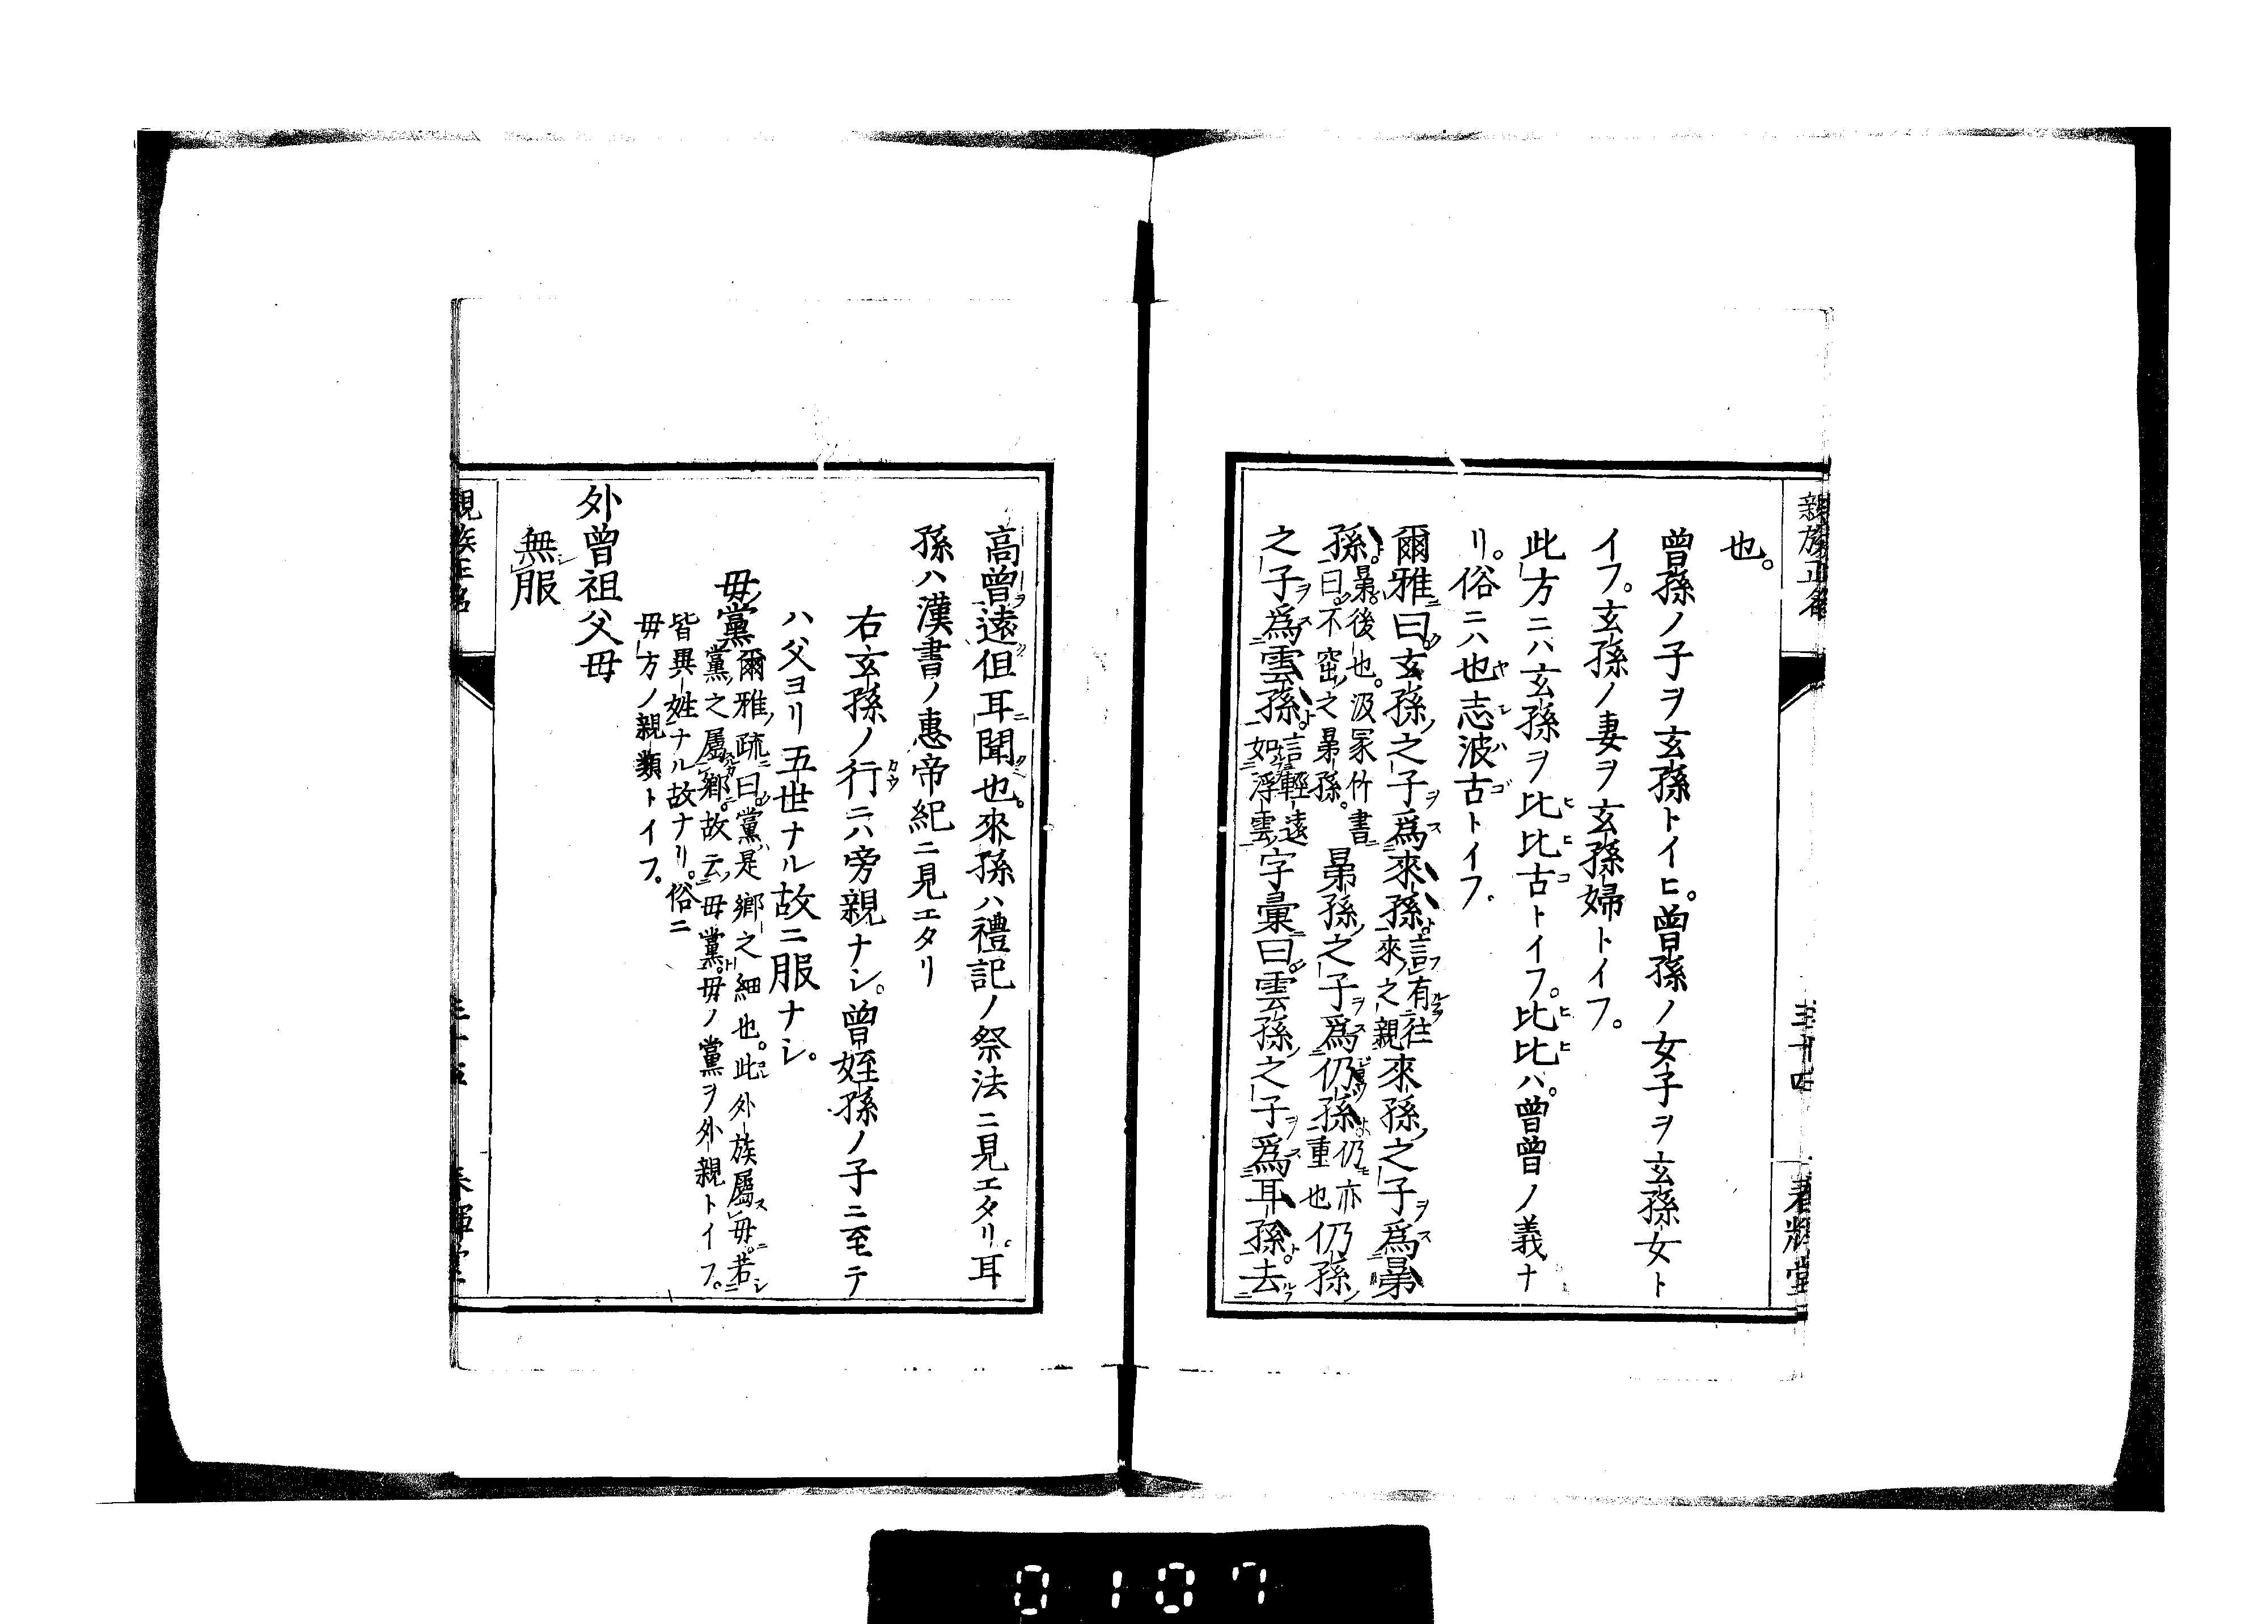 親族正名 三十四 春輝堂
也。
曾孫ノ子ヲ玄孫トイヒ。曾孫ノ女子ヲ玄孫女ト
イフ。玄孫ノ妻ヲ玄孫婦トイフ。
此方ニハ玄孫ヲ比比古トイフ。比比ハ。曾曾ノ義ナ
リ。俗ニハ也志波古トイフ.
爾雅曰玄孫之子爲來孫言有往來之親來孫之子爲晜
孫晜後也。汲冢竹書曰不窋之晜孫。晜孫之子爲仍孫仍亦重也仍孫
之子爲雲孫言輕遠如浮雲字彙曰雲孫之子爲耳孫去
高曾遠但耳聞也。來孫ハ禮記ノ祭法ニ見エタリ。耳
孫ハ漢書ノ惠帝紀ニ見エタリ
右玄孫ノ行ニハ旁親ナシ。曾姪孫ノ子ニ至テ
ハ父ヨリ五世ナル故ニ服ナシ。
母黨爾雅疏曰黨是鄉之細也。此外族屬母若
黨之屬鄉故云母黨母ノ黨ヲ外親トイフ。
皆異姓ナル故ナリ。俗ニ
母方ノ親類トイフ。
外曾祖父母
無服
親族正名 三十五 春輝堂
0107